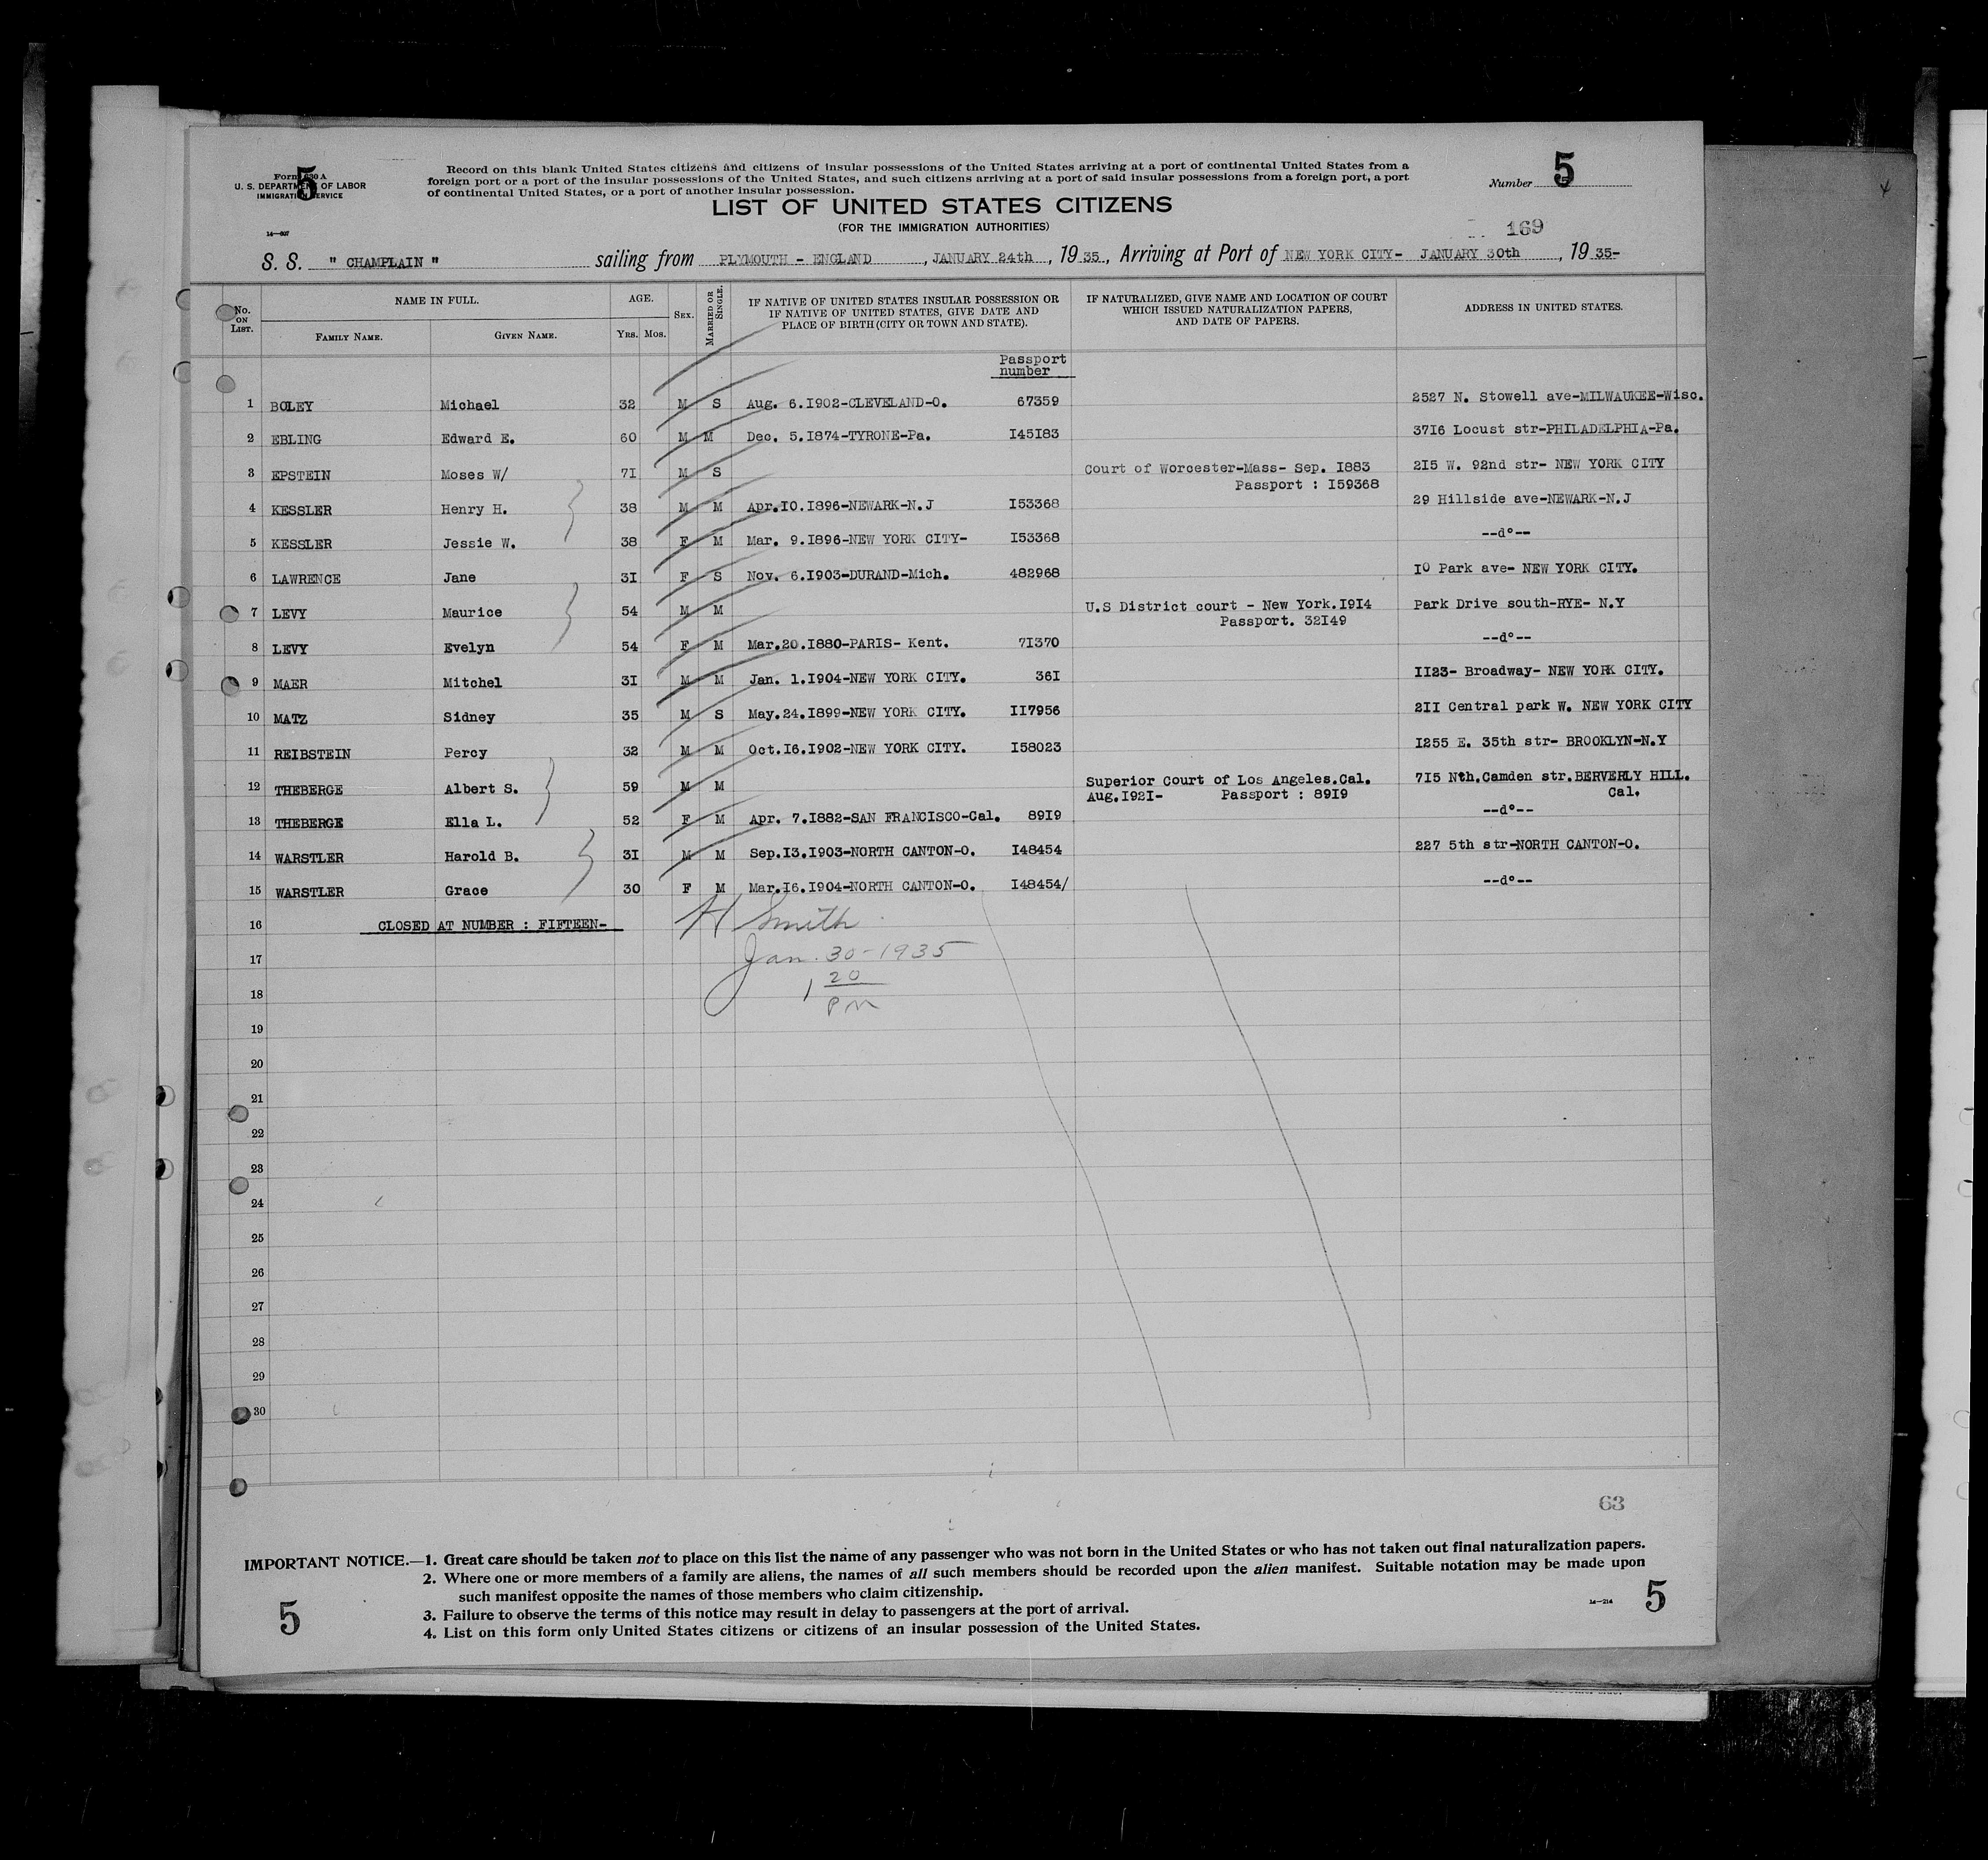 5
Form 630 A
U. S. DEPARTMENT OF LABOR
IMMIGRATION SERVICE
14—607
Record on this blank United States citizens and citizens of insular possessions of the United States arriving at a port of continental United States from a
foreign port or a port of the insular possessions of the United States, and such citizens arriving at a port of said insular possessions from a foreign port, a port
of continental United States, or a port of another insular possession.
Number 5
LIST OF UNITED STATES CITIZENS
(FOR THE IMMIGRATION AUTHORITIES)
169
S. S. " CHAMPLAIN " sailing from PLYMOUTH - ENGLAND , JANUARY 24th , 19 35 , Arriving at Port of NEW YORK CITY- JANUARY 30th , 19 35-
No. ON LIST. NAME IN FULL. AGE. SEX. MARRIED OR SINGLE. IF NATIVE OF UNITED STATES INSULAR POSSESSION OR IF NATIVE OF UNITED STATES, GIVE DATE AND PLACE OF BIRTH (CITY OR TOWN AND STATE). IF NATURALIZED, GIVE NAME AND LOCATION OF COURT WHICH ISSUED NATURALIZATION PAPERS, AND DATE OF PAPERS. ADDRESS IN UNITED STATES.
FAMILY NAME. GIVEN NAME. YRS. MOS.
Passport
number
1 BOLEY Michael 32 M S Aug. 6.I902-CLEVELAND-O. 67359 2527 N. Stowell ave-MILWAUKEE-Wisc.
2 EBLING Edward E. 60 M M Dec. 5.I874-TYRONE-Pa. I45I83 37I6 Locust str-PHILADELPHIA-Pa.
3 EPSTEIN Moses W/ 7I M S Court of Worcester-Mass- Sep. I883 2I5 W. 92nd str- NEW YORK CITY
Passport : I59368
4 KESSLER Henry H. 38 M M Apr.I0.I896-NEWARK-N.J I53368 29 Hillside ave-NEWARK-N.J
5 KESSLER Jessie W. 38 F M Mar. 9.I896-NEW YORK CITY- I53368 --d°--
6 LAWRENCE Jane 3I F S Nov. 6.I903-DURAND-Mich. 482968 I0 Park ave- NEW YORK CITY.
7 LEVY Maurice 54 M M U.S District court - New York.I9I4 Park Drive south-RYE- N.Y
Passport. 32I49
8 LEVY Evelyn 54 F M Mar.20.I880-PARIS- Kent. 7I370 --d°--
9 MAER Mitchel 3I M M Jan. 1.I904-NEW YORK CITY. 36I II23- Broadway- NEW YORK CITY.
10 MATZ Sidney 35 M S May.24.I899-NEW YORK CITY. II7956 2II Central park W. NEW YORK CITY
11 REIBSTEIN Percy 32 M M Oct.I6.I902-NEW YORK CITY. I58023 I255 E. 35th str- BROOKLYN-N.Y
12 THEBERGE Albert S. 59 M M Superior Court of Los Angeles.Cal. 7I5 Nth.Camden str.BERVERLY HILL.
Aug.I92I- Passport : 89I9 Cal.
13 THEBERGE Ella L. 52 F M Apr. 7.I882-SAN FRANCISCO-Cal. 89I9 --d°--
14 WARSTLER Harold B. 3I M M Sep.I3.I903-NORTH CANTON-O. I48454 227 5th str-NORTH CANTON-O.
15 WARSTLER Grace 30 F M Mar.I6.I904-NORTH CANTON-O. I48454/ --d°--
16 CLOSED AT NUMBER : FIFTEEN- H Smith
17 Jan. 30-1935
18 1 20 PM
19
20
21
22
23
24
25
26
27
28
29
30
63
IMPORTANT NOTICE.—1. Great care should be taken not to place on this list the name of any passenger who was not born in the United States or who has not taken out final naturalization papers.
2. Where one or more members of a family are aliens, the names of all such members should be recorded upon the alien manifest. Suitable notation may be made upon
such manifest opposite the names of those members who claim citizenship.
3. Failure to observe the terms of this notice may result in delay to passengers at the port of arrival.
4. List on this form only United States citizens or citizens of an insular possession of the United States.
5
14—214
5